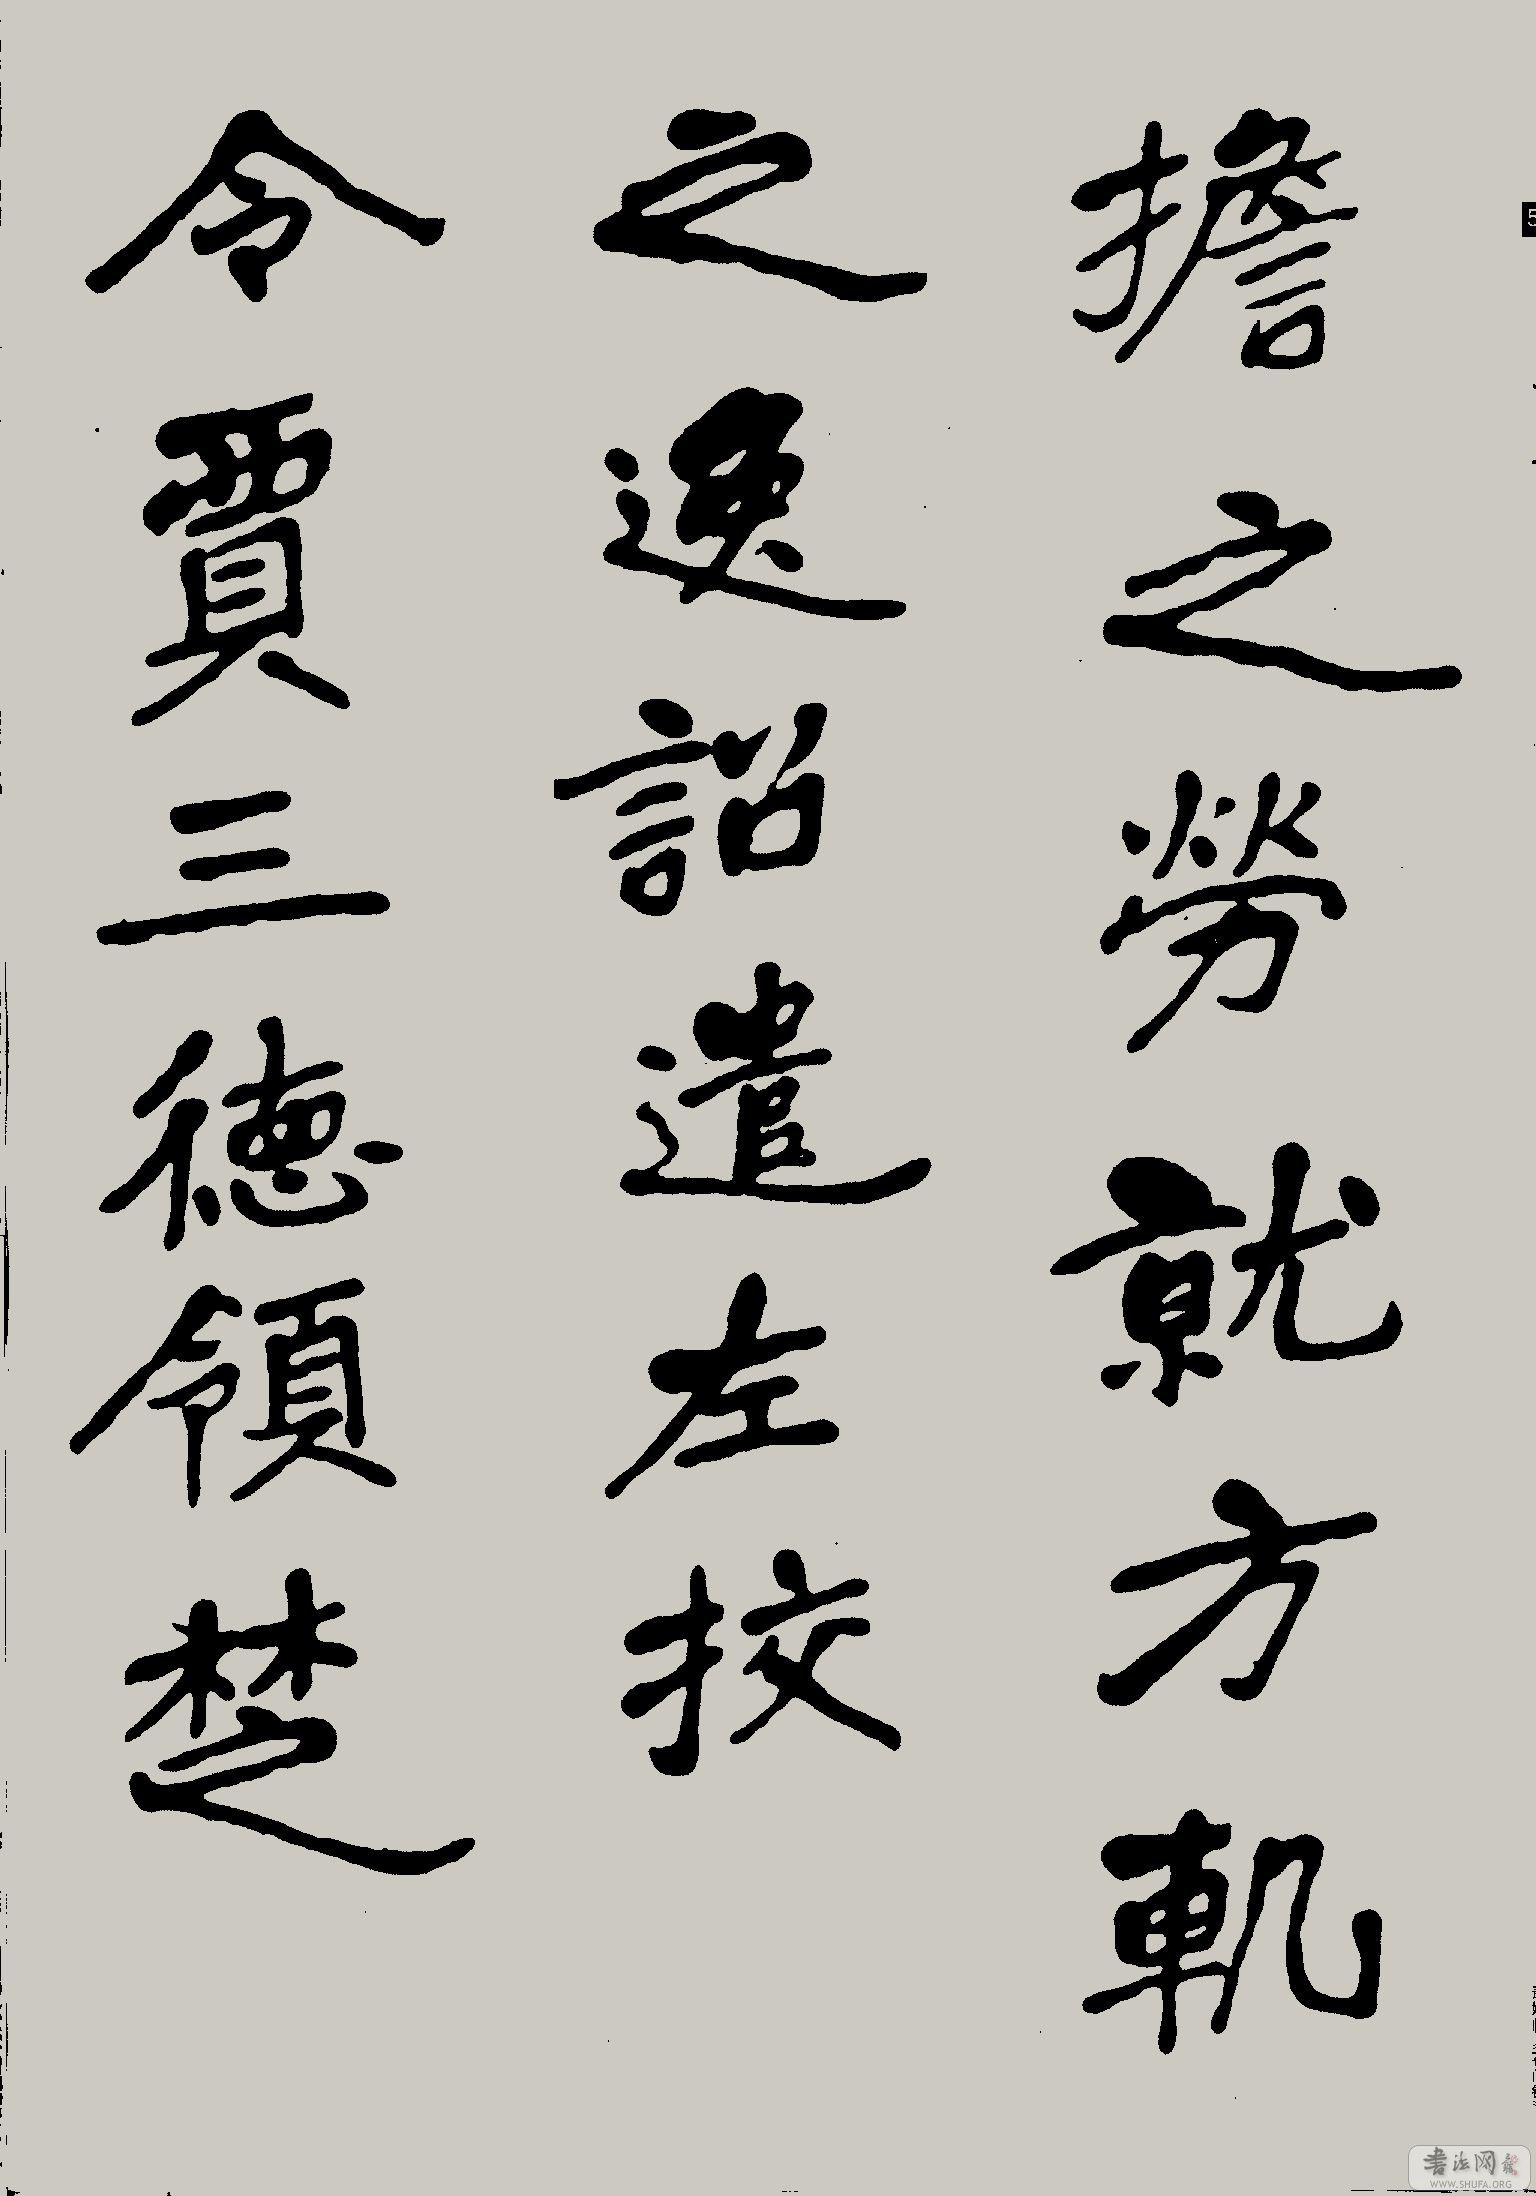 擔之勞就方軌
之逸詔遣左挍
令賈三德領楚
5
書法网
WWW.SHUFA.ORG